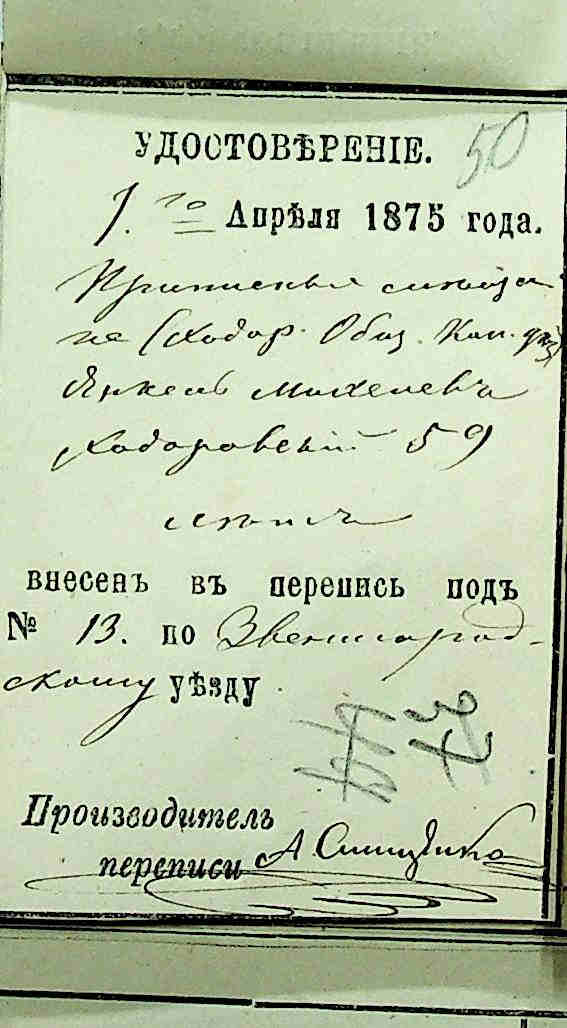 УДОСТОВѢРЕНІЕ. 50
1. го Апрѣля 1875 года.
не Ходор. Общ. Кан.
Янкель Михелевъ
Ходоровскій 59
лѣтъ
внесенъ въ перепись подъ
№ 13. по Звенигород-
скому уѣзду
Производитель
переписи А.